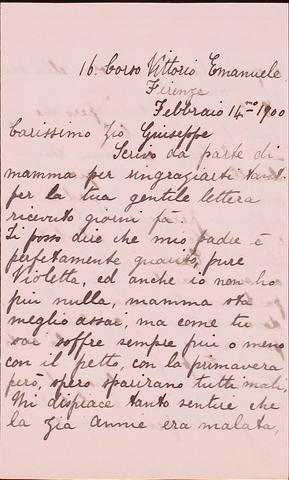 16. Corso Vittorio Emanuele
Firenze
Febbraio 14mo 1900
Carissimo zio Giuseppe
Scrivo da parte di
mamma per ringraziarti tant.
per la tua gentile lettera
ricevuto giorni fà.
Ti posso dire che mio padre è
perfetamente guarito, pure
Violetta, ed anche io non ho
più nulla, mamma sta
meglio assai, ma come tu
sai soffre sempre più o meno
con il petto, con la primavera
però, spero sparirano tutti mali,
Mi dispiace tanto sentire che
la zia Annie era malata,